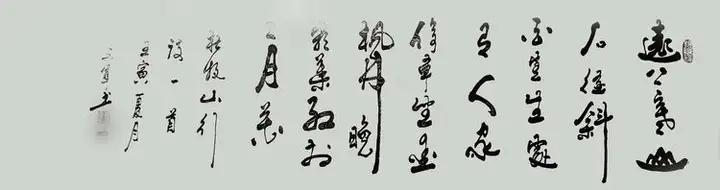 遠上寒山
石徑斜
白雲生處
有人家
停車坐愛
楓林晚
霜葉紅於
二月花
杜牧山行
詩一首
壬寅夏月
书